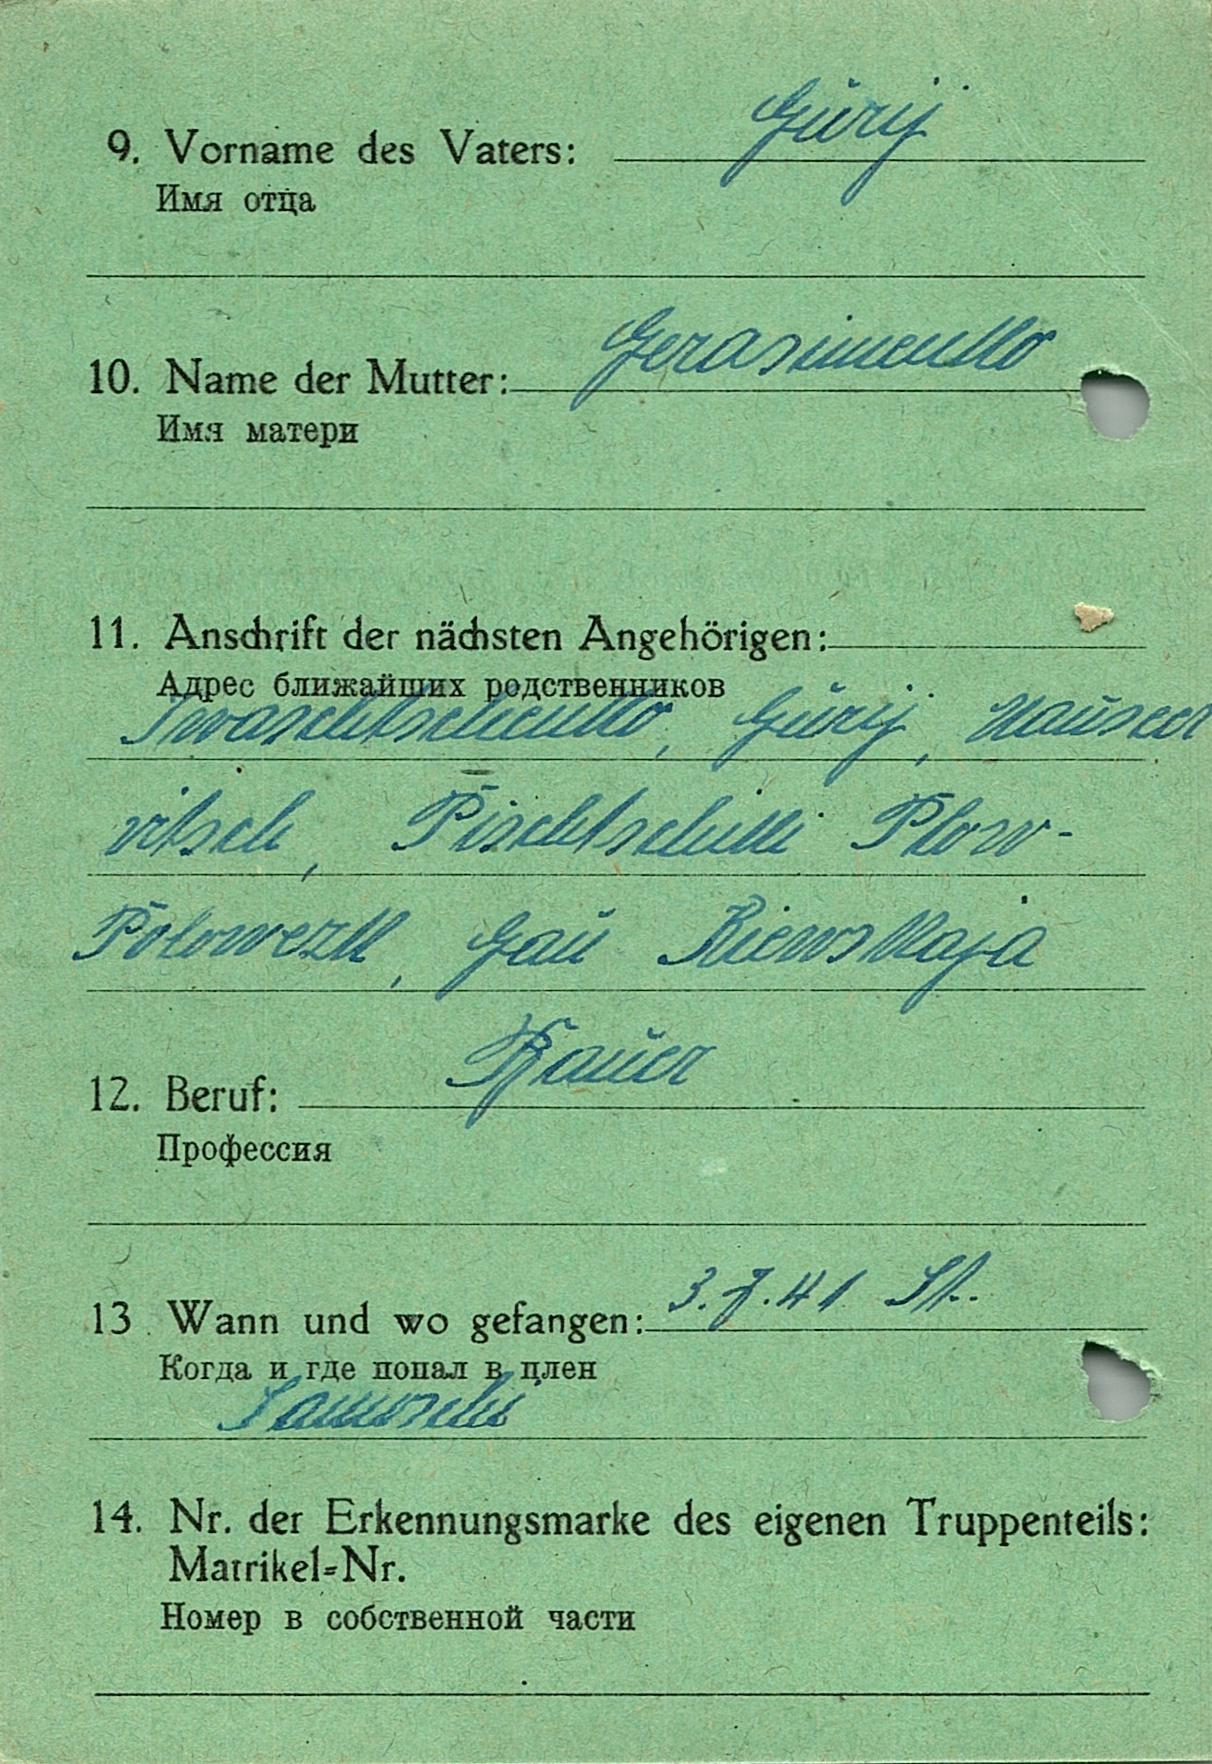 9. Vorname des Vaters: Gurij
Имя отца
10. Name der Mutter: Gerasimenko
Имя матери
11. Anschrift der nächsten Angehörigen:
Адрес ближайших родственников
Iwaschtschenko, Gurij,
witsch, Pischtschiki
Polowezk, Gau Kiewskaja
12. Beruf: Bauer
Профессия
13. Wann und wo gefangen: 3.7.41 St.
Когда и где попал в плен
14. Nr. der Erkennungsmarke des eigenen Truppenteils:
Matrikel-Nr.
Номер в собственной части